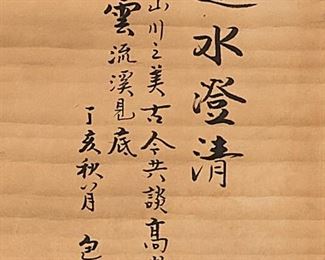 水澄清
山川之美古今共談高
雲流溪見底
丁亥秋八月